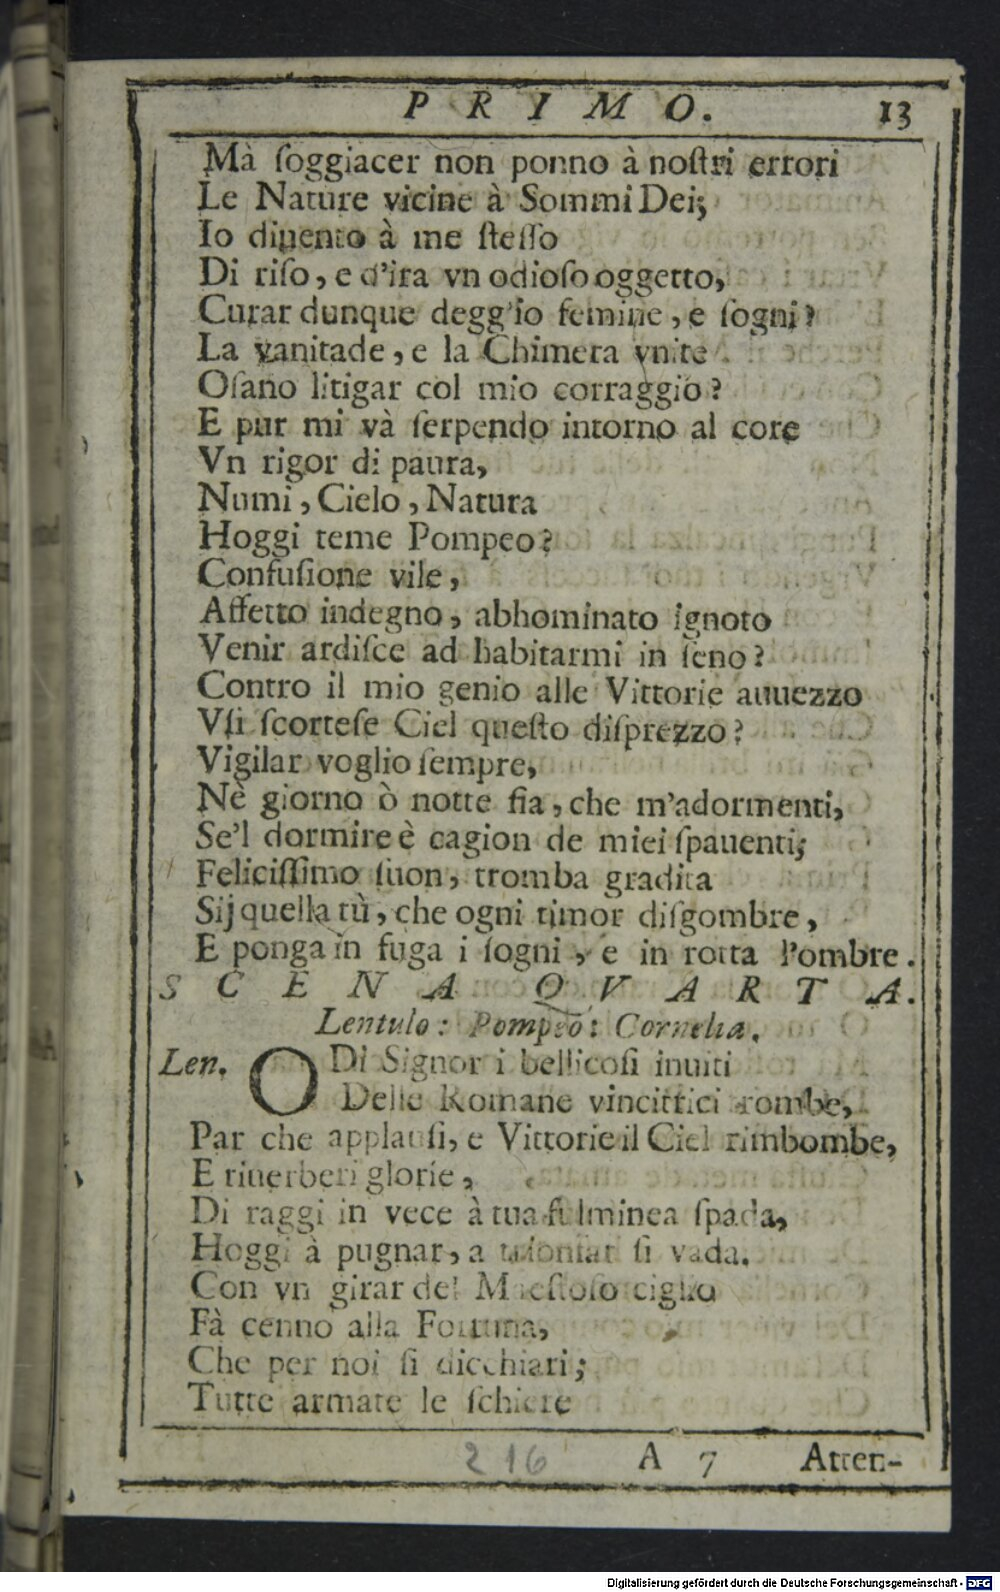 PRIMO. 13
Mà ſoggiacer non ponno à noſtri errori
Le Nature vicine à Sommi Dei;
Io diuento à me ſteſſo
Di riſo, e d'ira vn odioſo oggetto,
Curar dunque degg'io femine, e ſogni?
La vanitade, e la Chimera vnite
Oſano litigar col mio corraggio?
E pur mi và ſerpendo intorno al core
Vn rigor di paura,
Numi, Cielo, Natura
Hoggi teme Pompeo?
Confuſione vile,
Affetto indegno, abhominato ignoto
Venir ardiſce ad habitarmi in ſeno?
Contro il mio genio alle Vittorie auuezzo
Vſi ſcorteſe Ciel queſto diſprezzo?
Vigilar voglio ſempre,
Nè giorno ò notte fia, che m'adormenti,
Se'l dormire è cagion de miei ſpauenti;
Feliciſſimo ſuon, tromba gradita
Sij quella tù, che ogni timor diſgombre,
E ponga in fuga i ſogni, e in rotta l'ombre.
SCENA QVARTA.
Lentulo: Pompeo: Cornelia.
Len. ODi Signor i bellicoſi inuiti
Delle Romane vincittici trombe,
Par che applauſi, e Vittorie il Ciel rimbombe,
E riuerberi glorie,
Di raggi in vece à tua fulminea ſpada,
Hoggi à pugnar, a trionfar ſi vada.
Con vn girar del Maeſtoſo ciglio
Fà cenno alla Fortuna,
Che per noi ſi dicchiari;
Tutte armate le ſchiere
216 A 7 Atten-
Digitalisierung gefördert durch die Deutsche Forschungsgemeinschaft - DFG